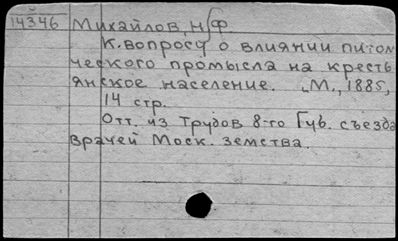 14346 Михайлов, Н.Ф.
К вопросу о влиянии питом
ческого промысла на кресть
янское население. М., 1885,
14 стр.
Отт. из Трудов 8-го Губ. съезда
врачей Моск. земства.